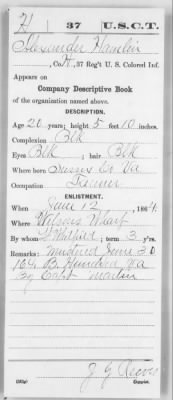 H 37 U.S.C.T.
Alexander Hamlin
, Co. H, 37 Reg't U. S. Colored Inf.
Appears on
Company Descriptive Book
of the organization named above.
DESCRIPTION.
Age 20 years; height 5 feet 10 inches.
Complexion Blk
Eyes Blk; hair Blk
Where born Sussex Co Va
Occupation Farmer
ENLISTMENT.
When June 12, 1864.
Where Wilsons Wharf
By whom ; term 3 y'rs.
Remarks: Mustered June 30
1864 B. Hundred Va
By Capt Martin
J G Reeves
Copyist.